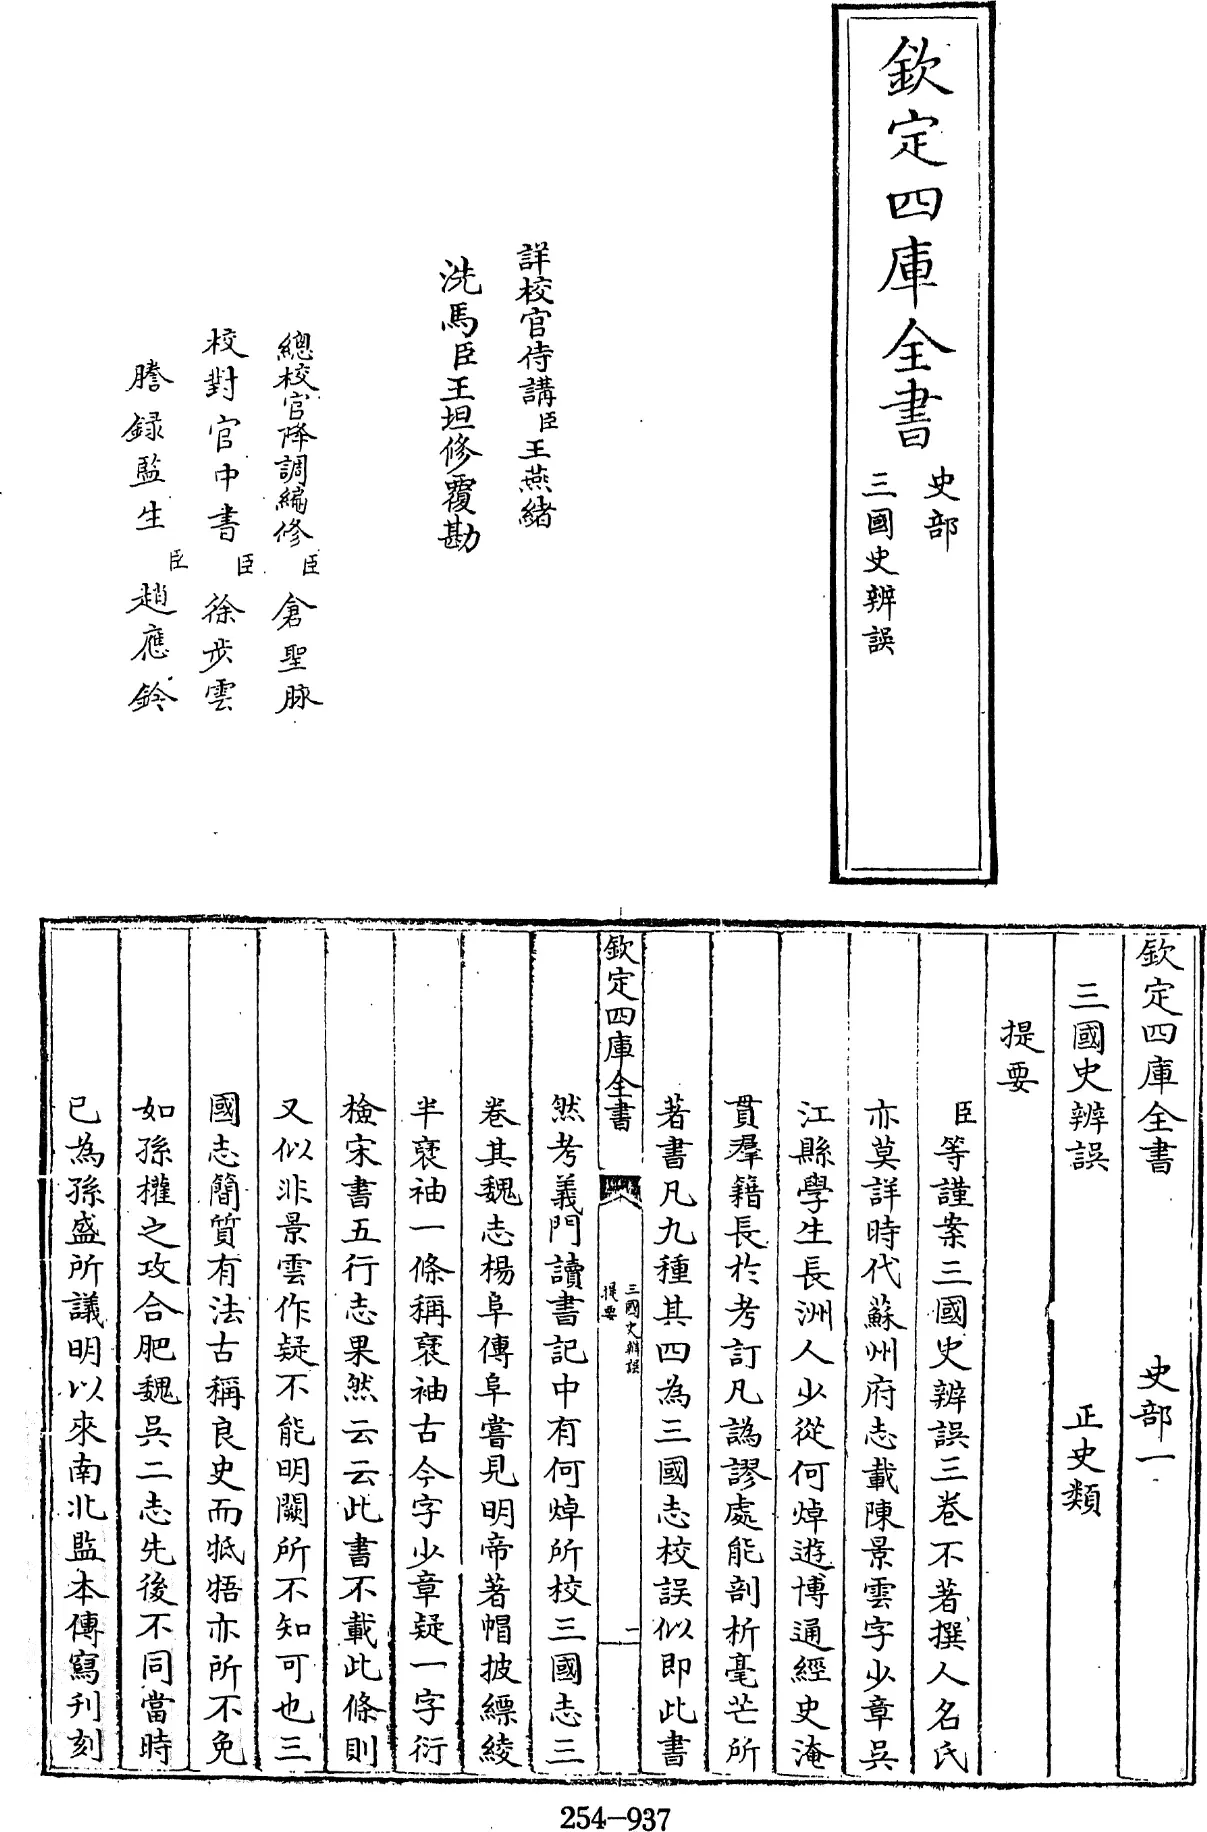 欽定四庫全書
史部
三國史辨誤
詳校官侍講臣王燕緒
洗馬臣王坦修覆勘
總校官降調編修臣倉聖脉
校對官中書臣徐步雲
謄録監生臣趙應鈴
欽定四庫全書 史部一
三國史辨誤 正史類
提要
臣等謹案三國史辨誤三卷不著撰人名氏
亦莫詳時代蘇州府志載陳景雲字少章吳
江縣學生長洲人少從何焯遊博通經史淹
貫羣籍長於考訂凡譌謬處能剖析毫芒所
著書凡九種其四為三國志校誤似即此書
欽定四庫全書
三國史辨誤
提要
一
然考義門讀書記中有何焯所校三國志三
卷其魏志楊阜傳阜嘗見明帝著帽披縹綾
半褎袖一條稱褎袖古今字少章疑一字衍
檢宋書五行志果然云云此書不載此條則
又似非景雲作疑不能明闕所不知可也三
國志簡質有法古稱良史而牴牾亦所不免
如孫權之攻合肥魏吳二志先後不同當時
已為孫盛所議明以來南北監本傳寫刊刻
254-937